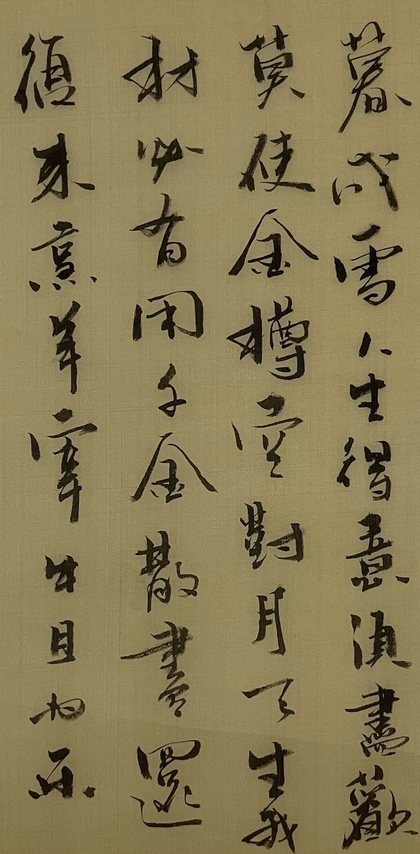 暮成雪人生得意須盡歡
莫使金樽空對月天生我
材必有用千金散盡還
復来烹羊宰牛且為樂